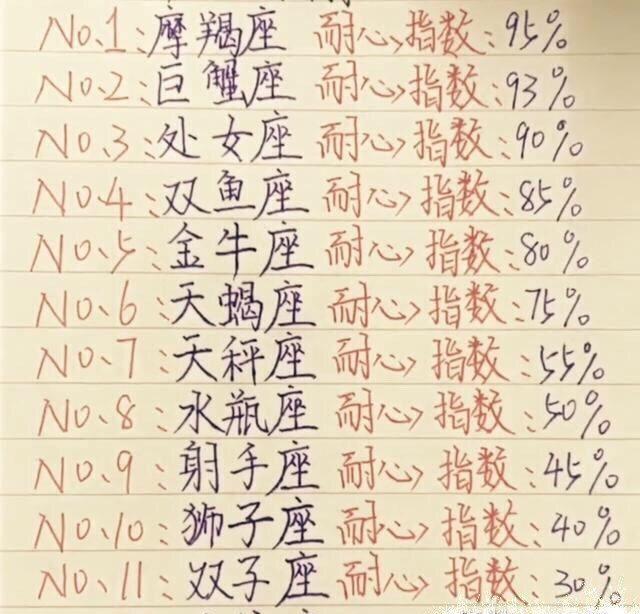 No.1:摩羯座 耐心指数:95%
No.2:巨蟹座 耐心指数:93%
No.3:处女座 耐心指数:90%
No.4:双鱼座 耐心指数:85%
No.5:金牛座 耐心指数:80%
No.6:天蝎座 耐心指数:75%
No.7:天秤座 耐心指数:55%
No.8:水瓶座 耐心指数:50%
No.9:射手座 耐心指数:45%
No.10:狮子座 耐心指数:40%
No.11:双子座 耐心指数:30%